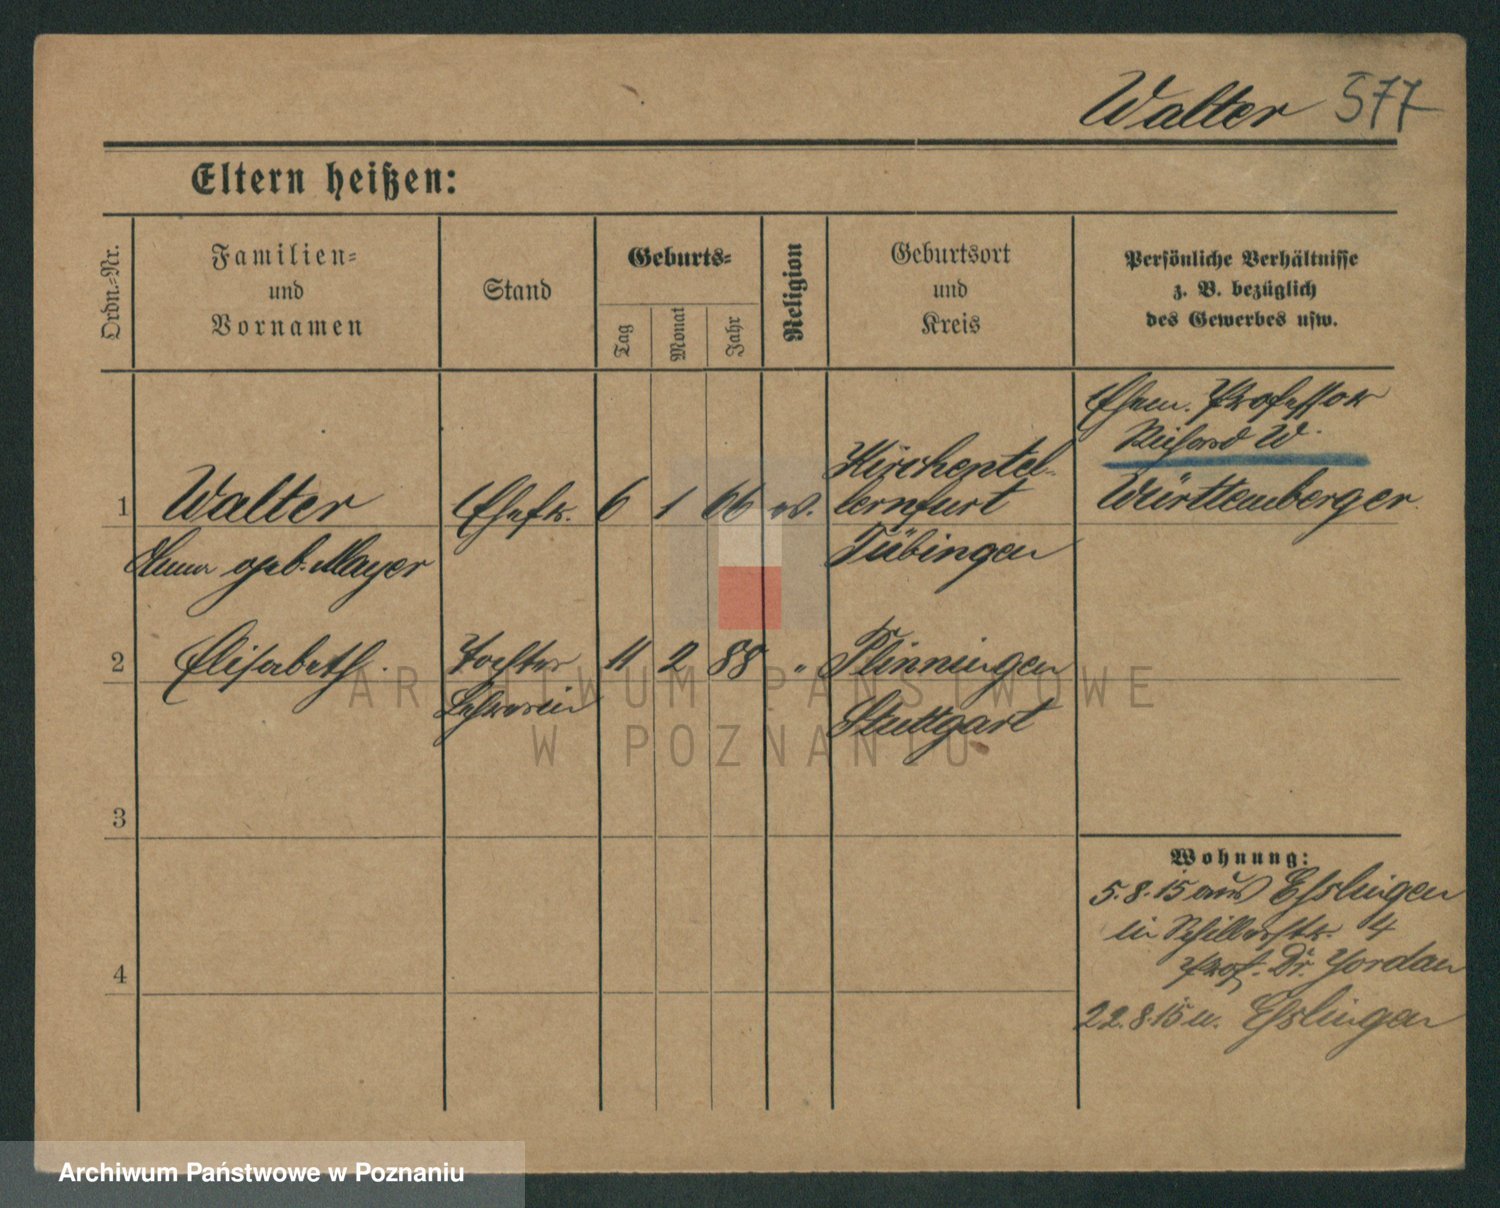 Walter 577
Eltern heißen:
Ordn.-Nr.
Familien-
und
Vornamen
Stand
Geburts-
Tag
Monat
Jahr
Religion
Geburtsort
und
Kreis
Persönliche Verhältnisse
z. B. bezüglich
des Gewerbes usw.
Ehem. Professor
Richard W.
Württemberger
1 Walter Ehefr. 6 1 66 ev. Kirchentel-
lernfurt
geb. Mayer Tübingen
2 Elisabeth. Tochter 11 2 88 " Plinningen
Lehrerin Stuttgart
3
4
Wohnung:
5.8.15 aus Esslingen
in Schillerstr. 4
Prof. Dr. Jordan
22.8.15 n. Esslingen
ARCHIWUM PAŃSTWOWE
W POZNANIU
Archiwum Państwowe w Poznaniu